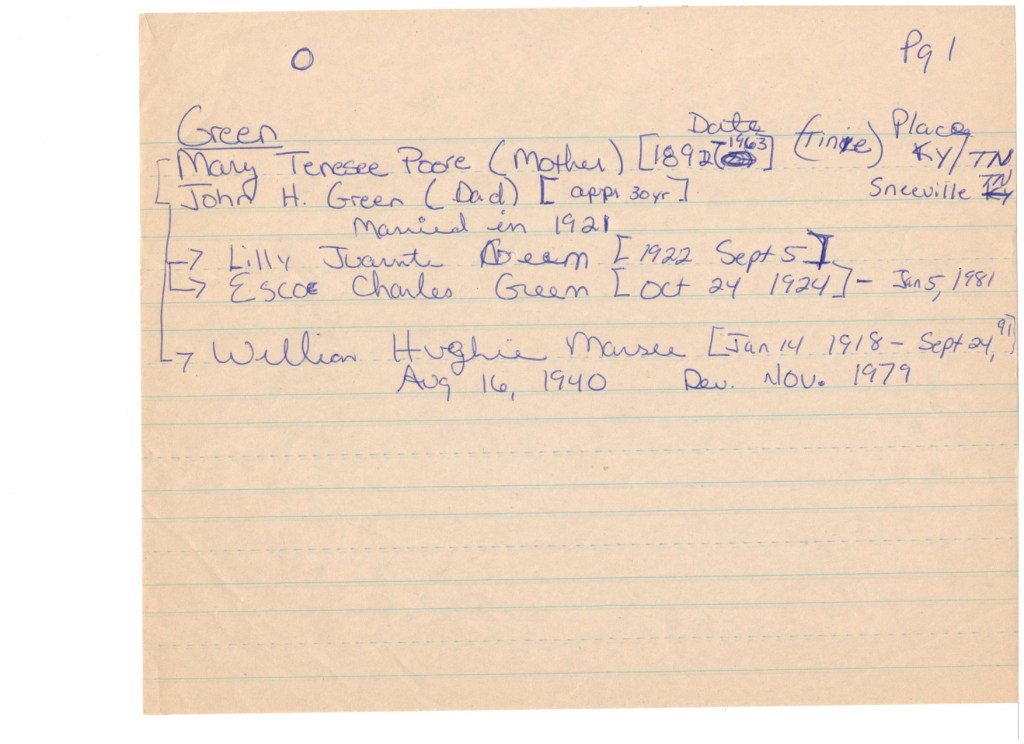 O Pg 1
Green Date Place
Mary Teresee Poore (Mother) [1892 (1963] (Tinie) KY/TN
John H. Green (Dad) [appr 30yr] Sneeville TN
Married in 1921
→ Lilly Juanita Green [1922 Sept 5]
→ Escoe Charles Green [Oct 24 1924] - Jan 5, 1981
→ William Hughie Marsee [Jan 14 1918 - Sept 24, 91]
Aug 16, 1940 Dev. Nov. 1979